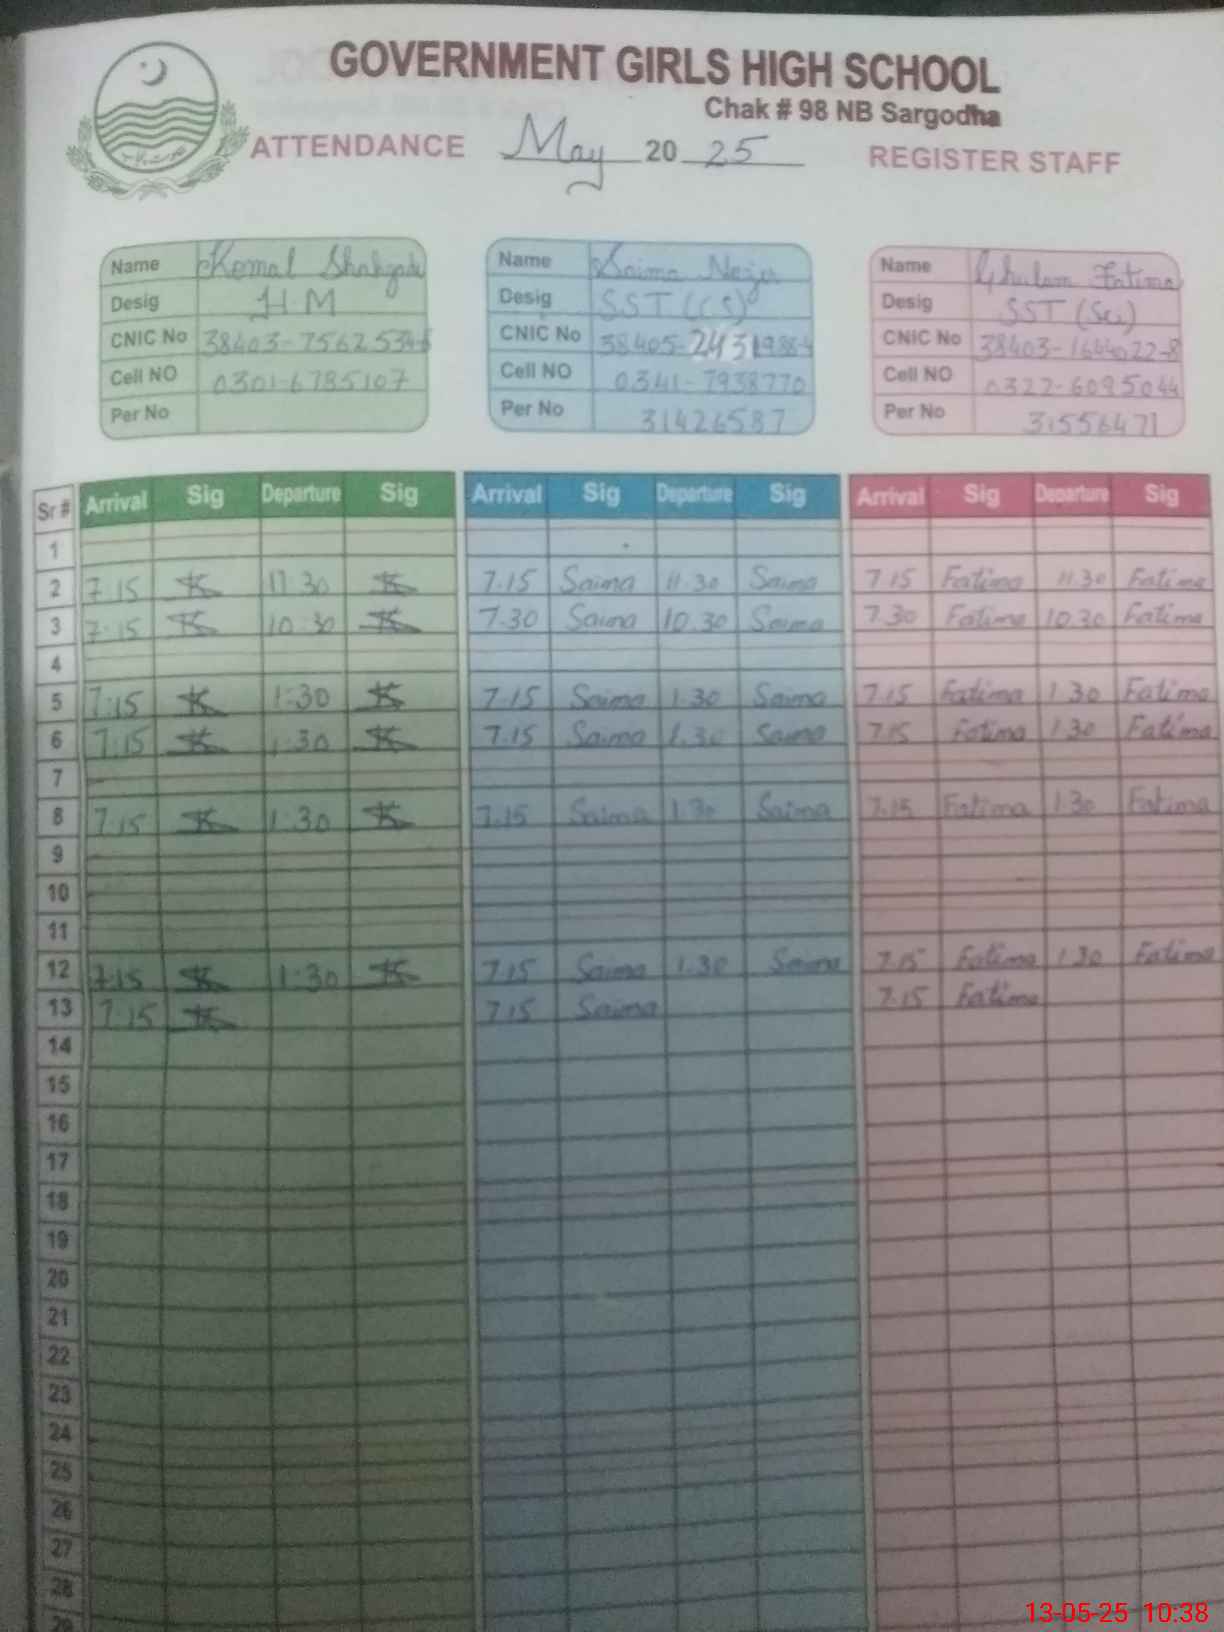 GOVERNMENT GIRLS HIGH SCHOOL
Chak # 98 NB Sargodha
ATTENDANCE May 20 25 REGISTER STAFF
Name Komal Shahzadi Name Saima Name Ghulam Fatima
Desig H M Desig SST (CS) Desig SST (Sci)
CNIC No 38403-7562534-8 CNIC No 38405- CNIC No 38403-1644022-8
Cell NO 0301-6785107 Cell NO 0341-7938770 Cell NO 0322-6095044
Per No Per No 31426587 Per No 31556471
Sr # Arrival Sig Departure Sig Arrival Sig Departure Sig Arrival Sig Departure Sig
1
2 7.15 11.30 7.15 Saima 11.30 Saima 7.15 Fatima 11.30 Fatima
3 7.15 10.30 7.30 Saima 10.30 Saima 7.30 Fatima 10.30 Fatima
4
5 7.15 1.30 7.15 Saima 1.30 Saima 7.15 Fatima 1.30 Fatima
6 7.15 1.30 7.15 Saima 1.30 Saima 7.15 Fatima 1.30 Fatima
7
8 7.15 1.30 7.15 Saima 1.30 Saima 7.15 Fatima 1.30 Fatima
9
10
11
12 7.15 1:30 7.15 Saima 1.30 Saima 7.15 Fatima 1.30 Fatima
13 7.15 7.15 Saima 7.15 Fatima
14
15
16
17
18
19
20
21
22
23
24
25
26
27
28
29
13-05-25 10:38